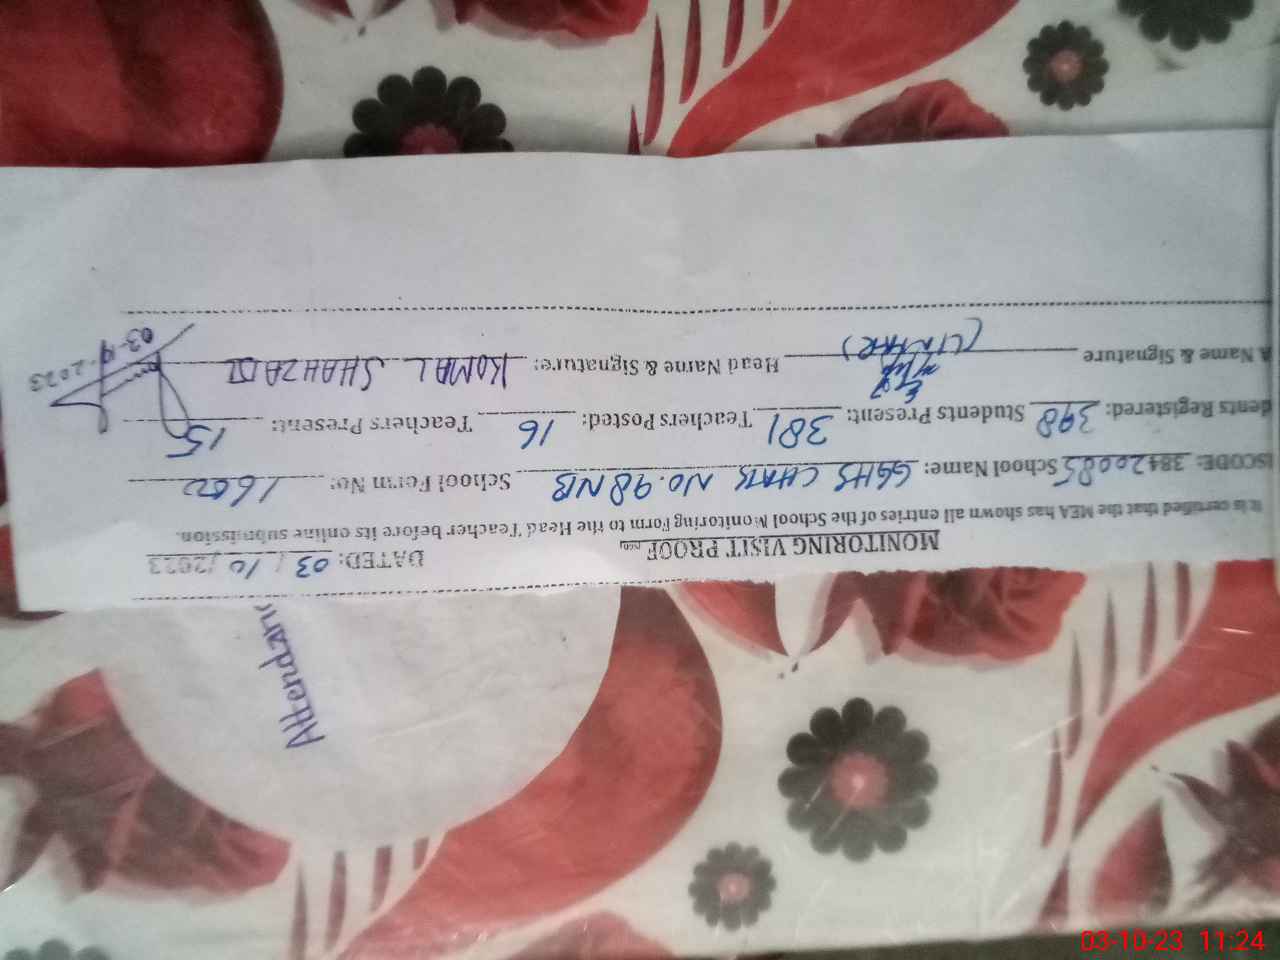 MONITORING VISIT PROOF DATED: 03 / 10 /2023
It is certified that the MEA has shown all entries of the School Monitoring Form to the Head Teacher before its online submission.
ISCODE: 38420085 School Name: GGHS CHAK NO. 98 NB School Form No: 1600
dents Registered: 398 Students Present: 381 Teachers Posted: 16 Teachers Present: 15
A Name & Signature Head Name & Signature: KOMAL SHAHZADI
03-10-2023
Attendan
03-10-23 11:24